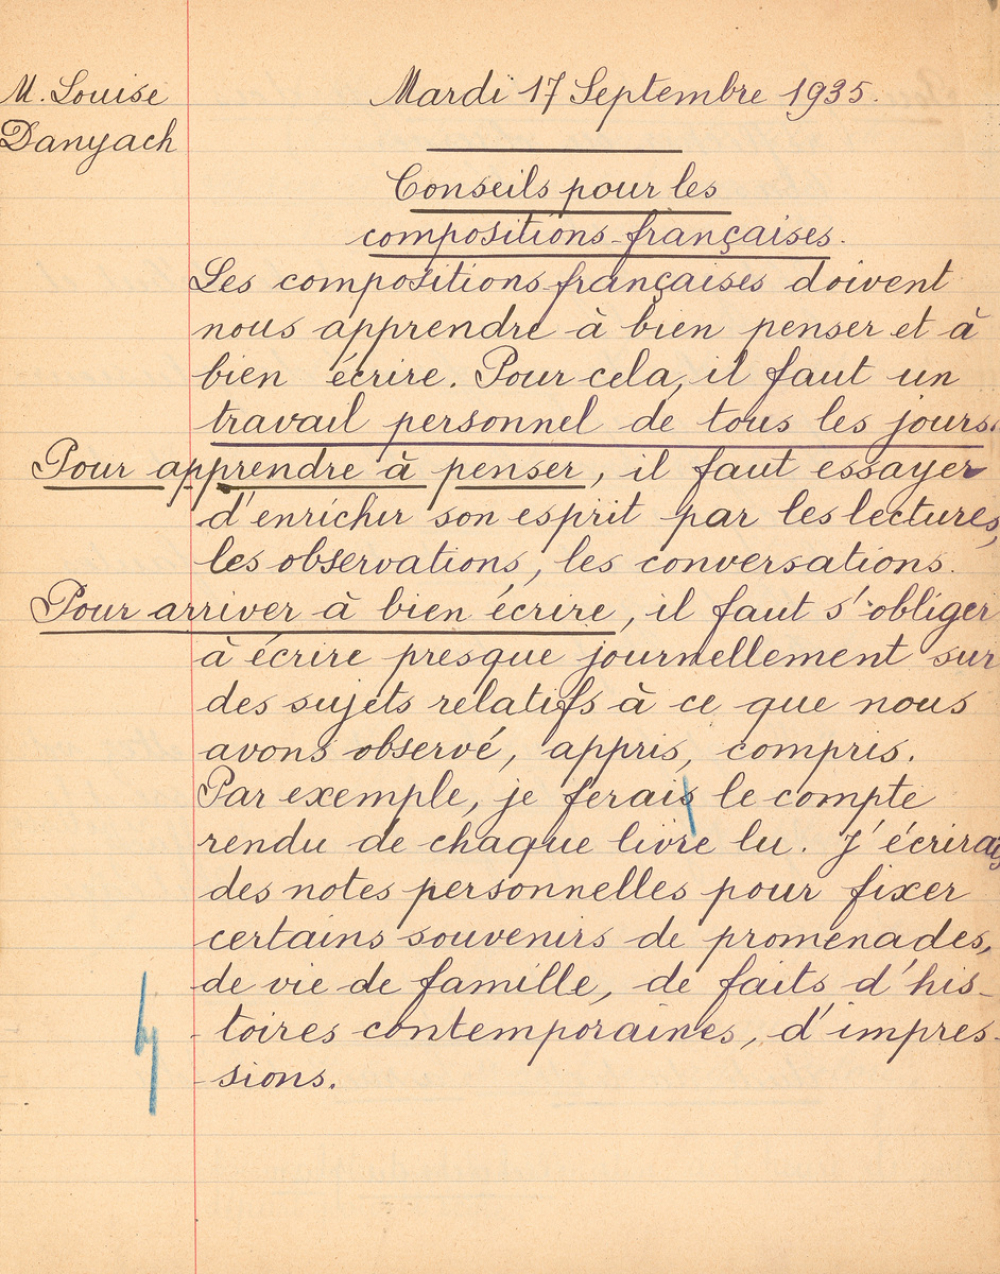 M. Louise
Danyach
Mardi 17 Septembre 1935.
Conseils pour les
compositions françaises.
Les compositions françaises doivent
nous apprendre à bien penser et à
bien écrire. Pour cela, il faut un
travail personnel de tous les jours.
Pour apprendre à penser, il faut essayer
d'enrichir son esprit par les lectures,
les observations, les conversations.
Pour arriver à bien écrire, il faut s'obliger
à écrire presque journellement sur
des sujets relatifs à ce que nous
avons observé, appris, compris.
Par exemple, je ferais le compte
rendu de chaque livre lu. J'écrirais
des notes personnelles pour fixer
certains souvenirs de promenades,
de vie de famille, de faits d'his-
-toires contemporaines, d'impres-
-sions.